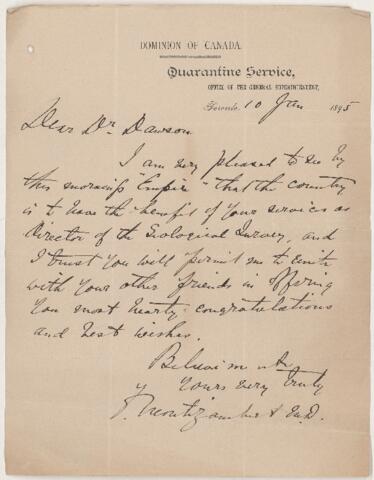 DOMINION OF CANADA.
Quarantine Service,
OFFICE OF THE GENERAL SUPERINTENDENT,
Toronto, 10 Jan 1895
Dear Dr. Dawson
I am very pleased to see by
this morning's "Empire" that the country
is to have the benefit of your services as
Director of the Geological Survey, and
I trust you will permit me to unite
with your other friends in offering
you most hearty congratulations
and best wishes.
Believe me
yours very truly
F. Montizambert M.D.